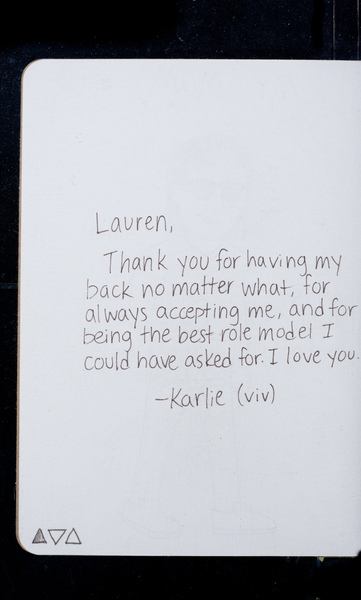 Lauren,
Thank you for having my
back no matter what, for
always accepting me, and for
being the best role model I
could have asked for. I love you.
-Karlie (viv)